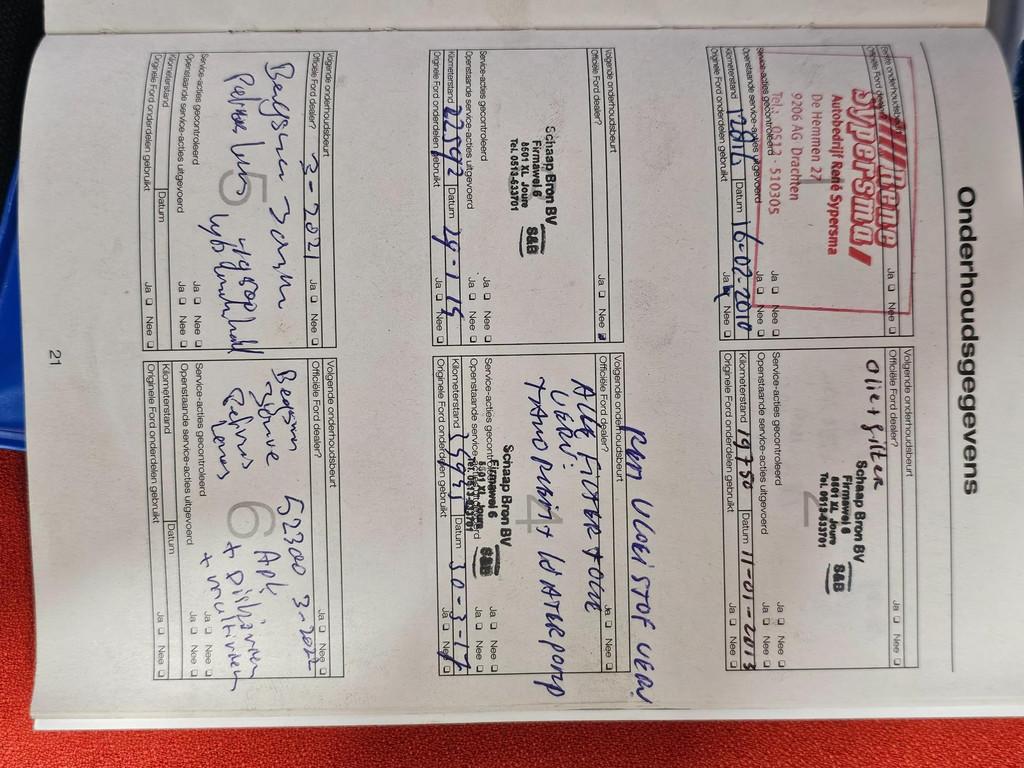 Onderhoudsgegevens
Eerste onderhoudsbeurt
Officiële Ford dealer?
Ja Nee
////Rene
Sypersma/
Autobedrijf René Sypersma
De Hemmen 27
9206 AG Drachten
Tel.: 0512 - 510305
Service-acties gecontroleerd Ja Nee
Openstaande service-acties uitgevoerd Ja Nee
Kilometerstand Datum 16-02-2010
Originele Ford onderdelen gebruikt Ja Nee
Volgende onderhoudsbeurt
Officiële Ford dealer? Ja Nee
Olie + filter
2
Schaap Bron BV
Firmawei 6
8501 XL Joure
Tel. 0513-633701
S&B
Service-acties gecontroleerd Ja Nee
Openstaande service-acties uitgevoerd Ja Nee
Kilometerstand 19750 Datum 11-01-2013
Originele Ford onderdelen gebruikt Ja Nee
Volgende onderhoudsbeurt
Officiële Ford dealer? Ja Nee
Schaap Bron BV
Firmawei 6
8501 XL Joure
Tel. 0513-633701
S&B
Service-acties gecontroleerd Ja Nee
Openstaande service-acties uitgevoerd Ja Nee
Kilometerstand 22592 Datum 29-1-15
Originele Ford onderdelen gebruikt Ja Nee
REM VLOEISTOF VERV
Volgende onderhoudsbeurt
Officiële Ford dealer? Ja Nee
ALLE FILTER + OLIE
VERV.
TANDRIEM + WATERPOMP
4
Schaap Bron BV
Firmawei 6
8501 XL Joure
Tel. 0513-633701
S&B
Service-acties gecontroleerd Ja Nee
Openstaande service-acties Ja Nee
Kilometerstand Datum 30-3-17
Originele Ford onderdelen gebruikt Ja Nee
Volgende onderhoudsbeurt
Officiële Ford dealer? 3-2021 Ja Nee
5
49500
Service-acties gecontroleerd Ja Nee
Openstaande service-acties uitgevoerd Ja Nee
Kilometerstand Datum
Originele Ford onderdelen gebruikt Ja Nee
Volgende onderhoudsbeurt
Officiële Ford dealer? Ja Nee
52300 3-2022
6
Apk
Service-acties gecontroleerd Ja Nee
Openstaande service-acties uitgevoerd Ja Nee
Kilometerstand Datum
Originele Ford onderdelen gebruikt Ja Nee
21